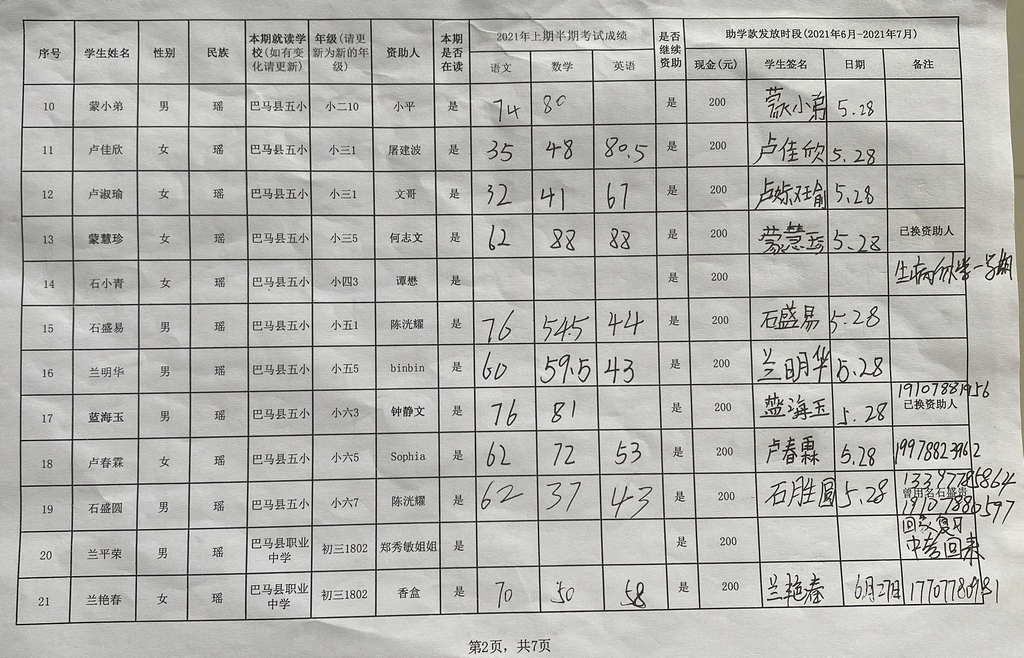 序号 学生姓名 性别 民族 本期就读学校(如有变化请更新) 年级(请更新为新的年级) 资助人 本期是否在读 2021年上期半期考试成绩 是否继续资助 助学款发放时段(2021年6月-2021年7月)
语文 数学 英语 现金(元) 学生签名 日期 备注
10 蒙小弟 男 瑶 巴马县五小 小二10 小平 是 74 80 是 200 蒙小弟 5.28
11 卢佳欣 女 瑶 巴马县五小 小三1 屠建波 是 35 48 80.5 是 200 卢佳欣 5.28
12 卢淑瑜 女 瑶 巴马县五小 小三1 文哥 是 32 41 67 是 200 5.28
13 蒙慧珍 女 瑶 巴马县五小 小三5 何志文 是 62 88 88 是 200 蒙慧珍 5.28 已换资助人
14 石小青 女 瑶 巴马县五小 小四3 谭懋 是 是 200 生病休学一学期
15 石盛易 男 瑶 巴马县五小 小五1 陈洸耀 是 76 54.5 44 是 200 石盛易 5.28
16 兰明华 男 瑶 巴马县五小 小五5 binbin 是 60 59.5 43 是 200 兰明华 5.28
17 蓝海玉 男 瑶 巴马县五小 小六3 钟静文 是 76 81 是 200 蓝海玉 5.28 已换资助人
18 卢春霖 女 瑶 巴马县五小 小六5 Sophia 是 62 72 53 是 200 卢春霖 5.28
19 石盛圆 男 瑶 巴马县五小 小六7 陈洸耀 是 62 37 43 是 200 石胜圆 5.28 曾用名石盛贵
20 兰平荣 男 瑶 巴马县职业中学 初三1802 郑秀敏姐姐 是 是 200 回家复习中考回来
21 兰艳春 女 瑶 巴马县职业中学 初三1802 香盒 是 70 50 58 是 200 兰艳春 6月27日
第2页，共7页